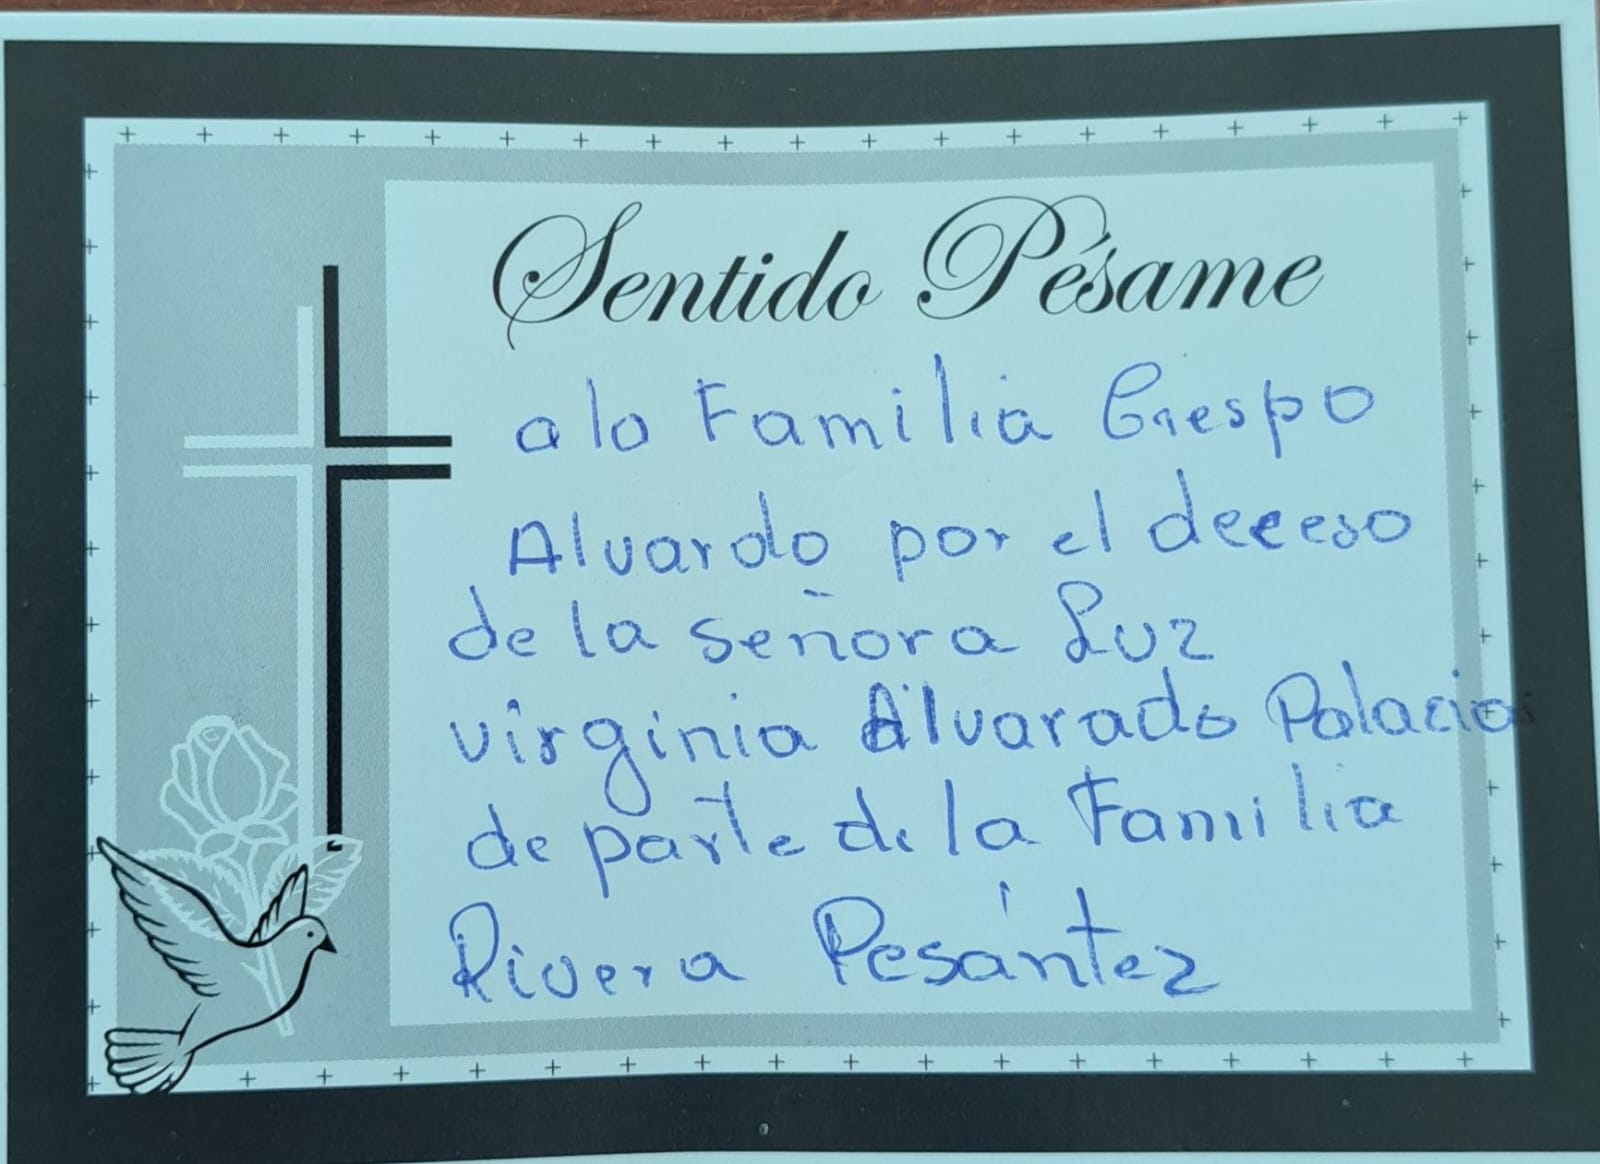 Sentido Pésame
a la Familia Crespo
Alvardo por el deceso
de la señora Luz
virginia Alvarado Palacios
de parte de la Familia
Rivera Pesántez